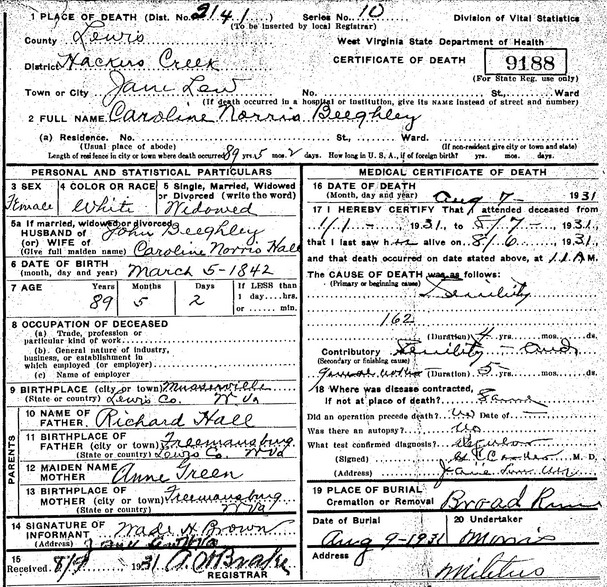 1 PLACE OF DEATH (Dist. No. 2141 Series No. 10 Division of Vital Statistics
(To be inserted by local Registrar)
County Lewis West Virginia State Department of Health
District Hackers Creek CERTIFICATE OF DEATH 9188
(For State Reg. use only)
Town or City Jane Lew No. St., Ward
(If death occurred in a hospital or institution, give its NAME instead of street and number)
2 FULL NAME Caroline Norris Beeghley
(a) Residence. No. St., Ward.
(Usual place of abode) (If non-resident give city or town and state)
Length of residence in city or town where death occurred 89 yrs. 5 mos. 2 days. How long in U. S., if of foreign birth? yrs. mos. days.
PERSONAL AND STATISTICAL PARTICULARS
3 SEX 4 COLOR OR RACE 5 Single, Married, Widowed
or Divorced (write the word)
Female White Widowed
5a If married, widowed or divorced
HUSBAND OF John Beeghley
(or) WIFE of
(Give full maiden name) Caroline Norris Hall
6 DATE OF BIRTH
(month, day and year) March 5-1842
7 AGE Years Months Days If LESS than
1 day....hrs.
or.... min.
89 5 2
8 OCCUPATION OF DECEASED
(a) Trade, profession or
particular kind of work
(b) General nature of industry,
business, or establishment in
which employed (or employer)
(c) Name of employer
9 BIRTHPLACE (city or town)
(State or country) Lewis Co. W Va
PARENTS
10 NAME OF
FATHER Richard Hall
11 BIRTHPLACE OF
FATHER (city or town) Freemansburg
(State or country) Lewis Co. W Va
12 MAIDEN NAME
MOTHER Anne Green
13 BIRTHPLACE OF
MOTHER (city or town) Freemansburg
(State or country) W Va
14 SIGNATURE OF
INFORMANT Wade H Brown
(Address) Jane Lew W Va
15
Received 8/9 1931
REGISTRAR
MEDICAL CERTIFICATE OF DEATH
16 DATE OF DEATH
(Month, day and year) Aug 7- 1931
17 I HEREBY CERTIFY That I attended deceased from
1/1- 1931, to 8/7-, 1931,
that I last saw her alive on 8/6, 1931
and that death occurred on date stated above, at 11 A M.
The CAUSE OF DEATH was as follows:
(Primary or beginning cause)
Senility
162
(Duration) 4 yrs. mos. ds.
Contributory Senility - and
(Secondary or finishing cause)
(Duration) 5- yrs. mos. ds.
18 Where was disease contracted,
if not at place of death? Same
Did an operation precede death? No Date of -
Was there an autopsy? No
What test confirmed diagnosis?
(Signed) M. D.
(Address) Jane Lew W Va
19 PLACE OF BURIAL
Cremation or Removal Broad Run
Date of Burial 20 Undertaker
Aug 9-1931 Morris
Address